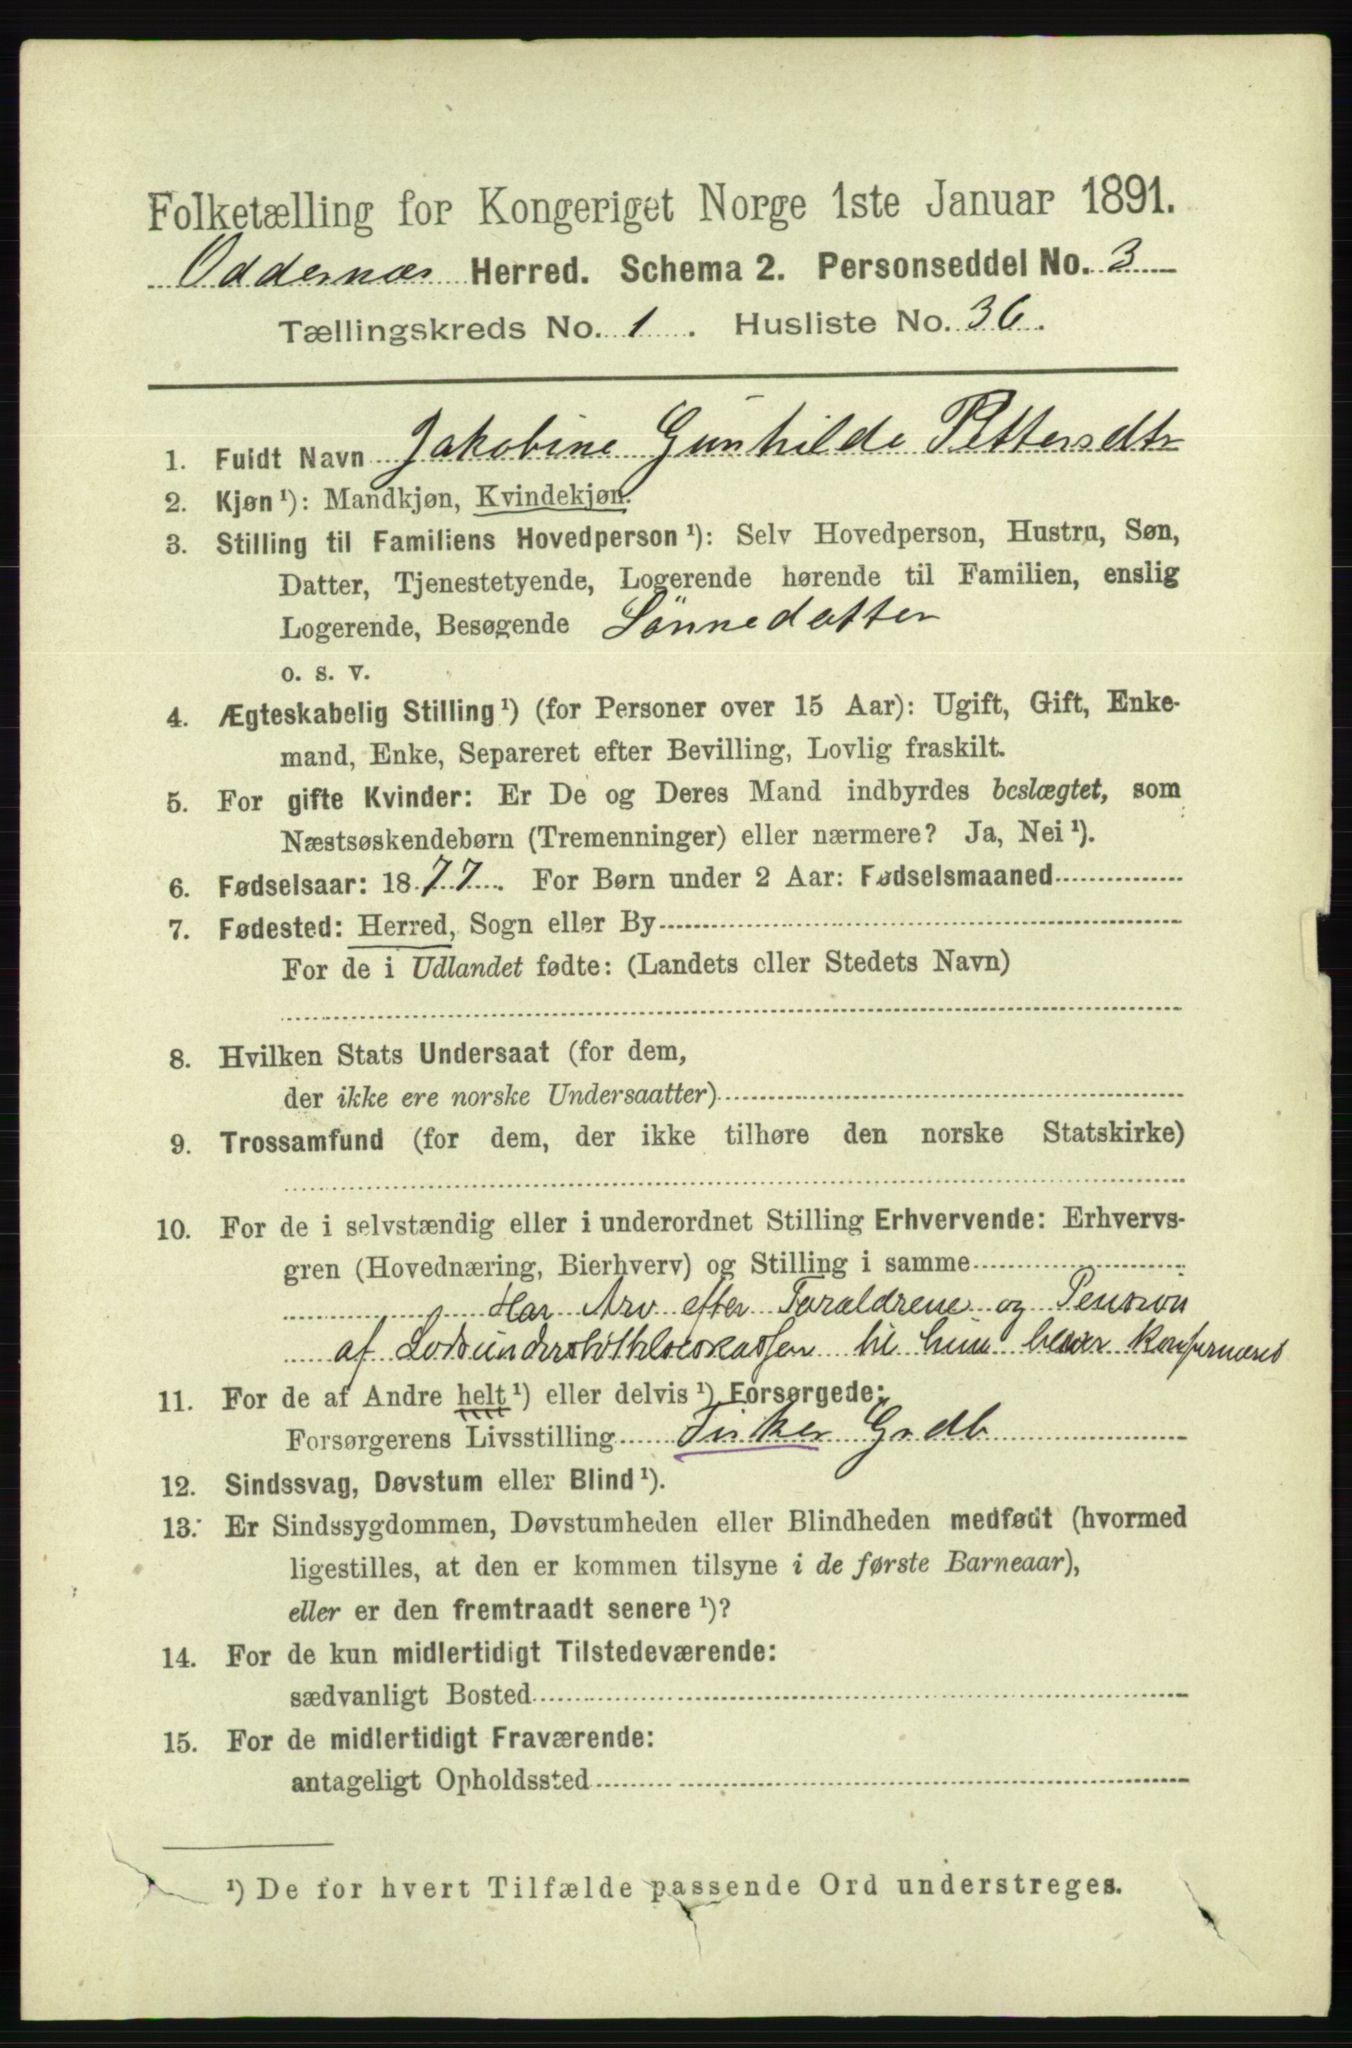 Folketælling for Kongeriget Norge 1ste Januar 1891.
Oddernæs Herred. Schema 2. Personseddel No. 3
Tællingskreds No. 1. Husliste No. 36.
1. Fuldt Navn Jakobine Gunhilde Pettersdtr
2. Kjøn ¹): Mandkjøn, Kvindekjøn.
3. Stilling til Familiens Hovedperson ¹): Selv Hovedperson, Hustru, Søn,
Datter, Tjenestetyende, Logerende hørende til Familien, enslig
Logerende, Besøgende Sönnedatter
o. s. v.
4. Ægteskabelig Stilling ¹) (for Personer over 15 Aar): Ugift, Gift, Enke-
mand, Enke, Separeret efter Bevilling, Lovlig fraskilt.
5. For gifte Kvinder: Er De og Deres Mand indbyrdes beslægtet, som
Næstsøskendebørn (Tremenninger) eller nærmere? Ja, Nei ¹).
6. Fødselsaar: 1877. For Børn under 2 Aar: Fødselsmaaned
7. Fødested: Herred, Sogn eller By
For de i Udlandet fødte: (Landets eller Stedets Navn)
8. Hvilken Stats Undersaat (for dem,
der ikke ere norske Undersaatter)
9. Trossamfund (for dem, der ikke tilhøre den norske Statskirke)
10. For de i selvstændig eller i underordnet Stilling Erhvervende: Erhvervs-
gren (Hovednæring, Bierhverv) og Stilling i samme
Har Arv efter Forældrene og Pension
af Lodsunderstöttelseskassen til hun bliver konfirmeret
11. For de af Andre helt ¹) eller delvis ¹) Forsørgede:
Forsørgerens Livsstilling Fisker Grdb
12. Sindssvag, Døvstum eller Blind ¹).
13. Er Sindssygdommen, Døvstumheden eller Blindheden medfødt (hvormed
ligestilles, at den er kommen tilsyne i de første Barneaar),
eller er den fremtraadt senere ¹)?
14. For de kun midlertidigt Tilstedeværende:
sædvanligt Bosted
15. For de midlertidigt Fraværende:
antageligt Opholdssted
¹) De for hvert Tilfælde passende Ord understreges.